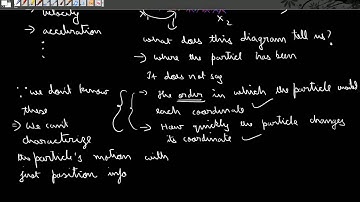 → velocity
→ acceleration
x₁ x₂
what does this diagram tell us?
→ where the particl has been
It does not say
∵ we don't know these
→ We can't characterize the particle's motion with just position info
→ the order in which the particle each coordinate
→ How quickly the particle changes its coordinate